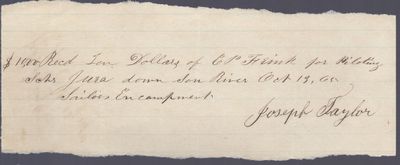 $10.00 Recd Ten Dollars of C P Frink for Piloting
Schr Jura down Son River Oct 13, 60
Sailors Encampment
Joseph Taylor